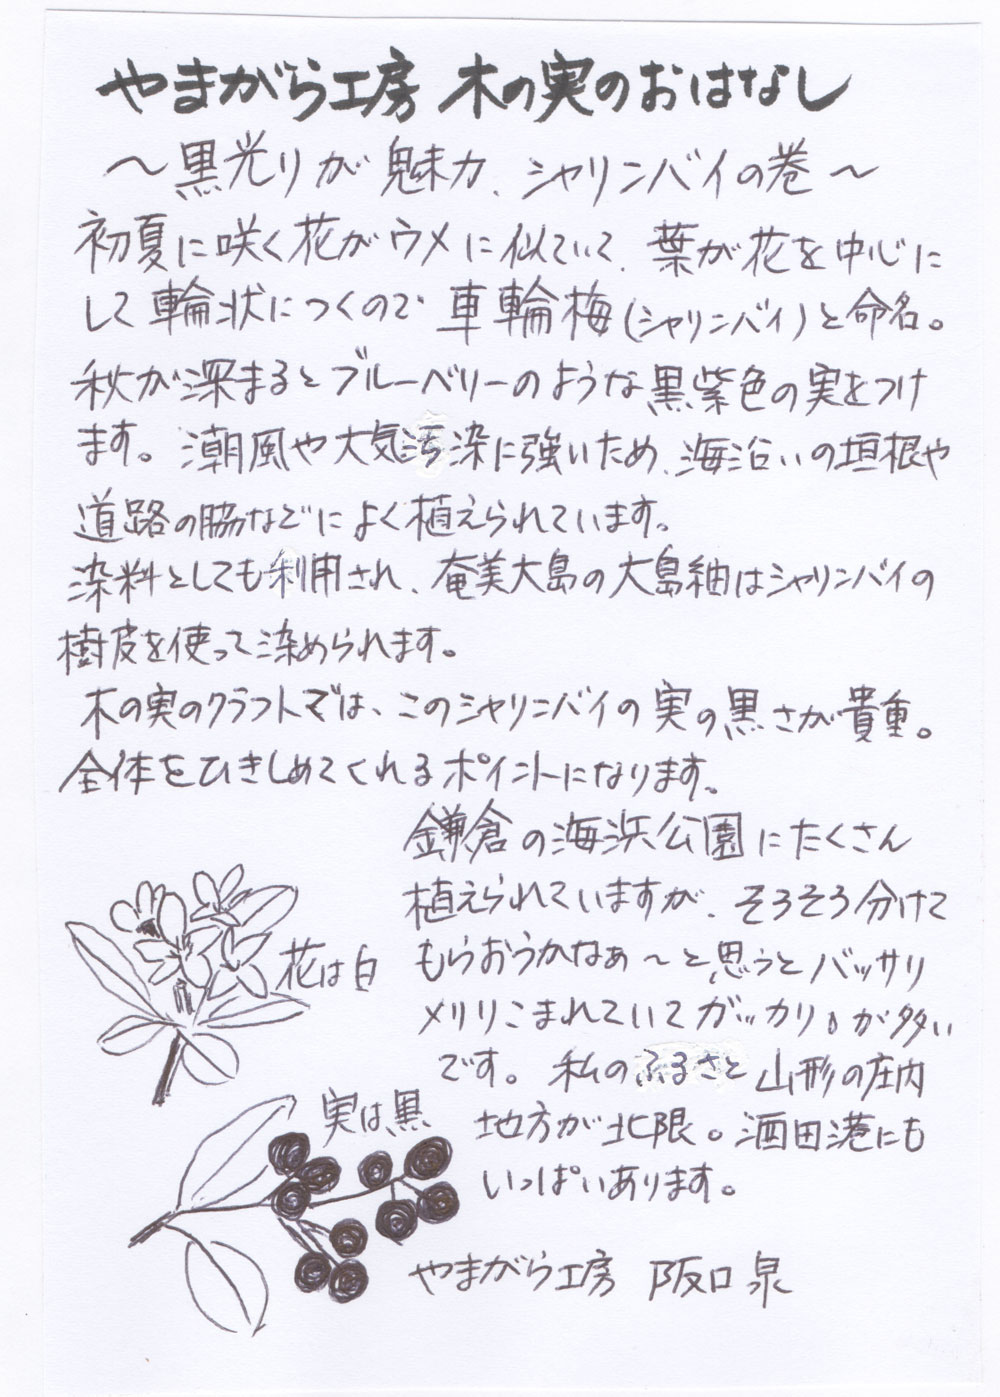 やまがら工房 木の実のおはなし
～黒光りが魅力、シャリンバイの巻～
初夏に咲く花がウメに似ていて、葉が花を中心に
して輪状につくので車輪梅(シャリンバイ)と命名。
秋が深まるとブルーベリーのような黒紫色の実をつけ
ます。潮風や大気汚染に強いため、海沿いの垣根や
道路の脇などによく植えられています。
染料としても利用され、奄美大島の大島紬はシャリンバイの
樹皮を使って染められます。
木の実のクラフトでは、このシャリンバイの実の黒さが貴重。
全体をひきしめてくれるポイントになります。
鎌倉の海浜公園にたくさん
植えられていますが、そろそろ分けて
もらおうかなぁ～と思うとバッサリ
メリリこまれていてガッカリ。が多い
です。私のふるさと山形の庄内
地方が北限。酒田港にも
いっぱいあります。
花は白
実は黒
やまがら工房 阪口泉